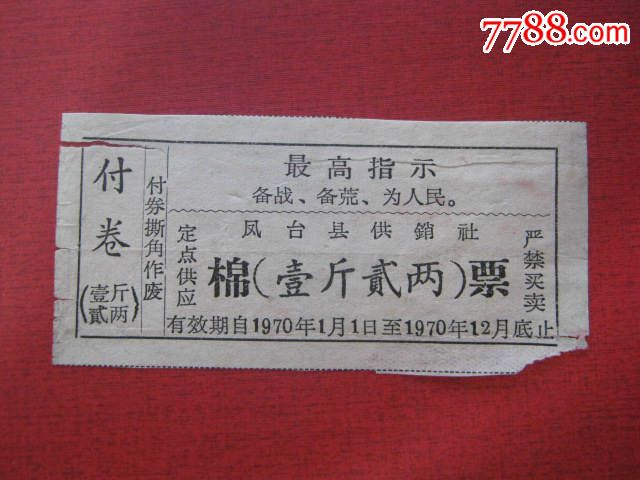 7788.com
付卷
（壹斤贰两）
付券撕角作废
最高指示
备战、备荒、为人民。
凤台县供銷社
定点供应
棉(壹斤貳两)票
严禁买卖
有效期自1970年1月1日至1970年12月底止